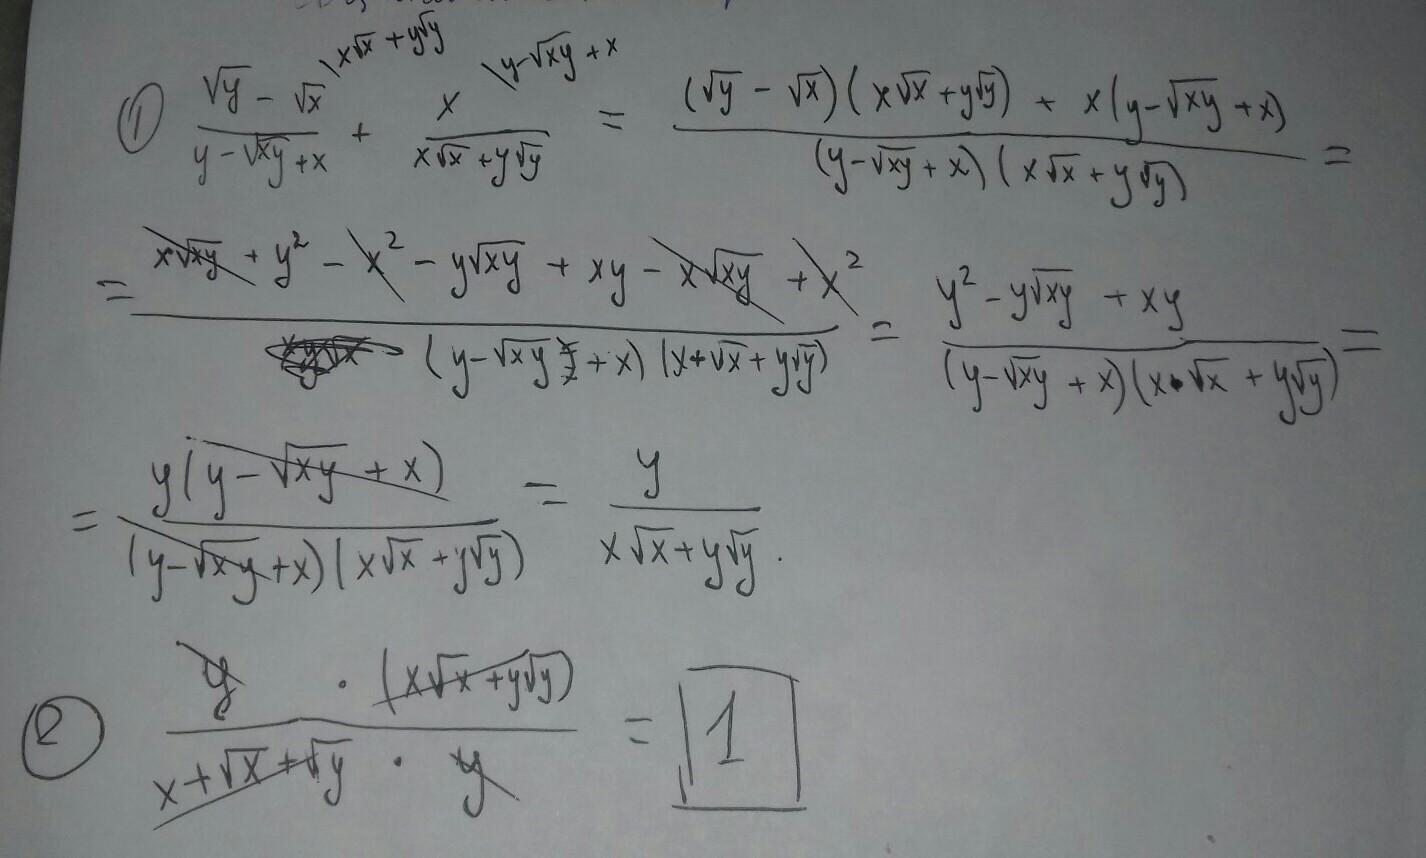 ① (√y - √x)/(y - √xy + x) \x√x + y√y + x/(x√x + y√y) \y-√xy + x = ((√y - √x)(x√x + y√y) + x(y-√xy + x))/((y-√xy + x)(x√x + y√y)) =
= (x√xy + y² - x² - y√xy + xy - x√xy + x²)/((y-√xy + x)(x+√x + y√y)) = (y² - y√xy + xy)/((y-√xy + x)(x·√x + y√y)) =
= y(y - √xy + x)/((y-√xy+x)(x√x + y√y)) = y/(x√x + y√y).
② (y · (x√x + y√y))/(x+√x+√y · y) = 1